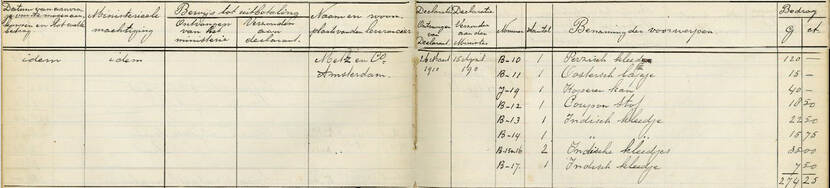 Ministerieele machtiging
Bewijs tot uitbetaling
Ontvangen van het ministerie
Verzonden aan declarant.
Naam en woonplaats van den leverancier
Declaratie Ontvangen van Declarant
Declaratie Verzonden aan den Minister
Nummer
Aantal
Benaming der voorwerpen
Bedrag
G ct.
idem idem Metz en Co. 1910 15 190 B-10 1 Perzisch kleedje 120 —
Amsterdam. B-11 1 Oostersch 15 —
J-19 1 Koperen kan 40 —
B-12 1 Coupon stof 18 50
B-13 1 Indisch kleedje 22 50
B-14 1 " " 15 75
B-15en16 2 Indische kleedjes 35 00
B-17. 1 Indisch kleedje 7 50
274 25